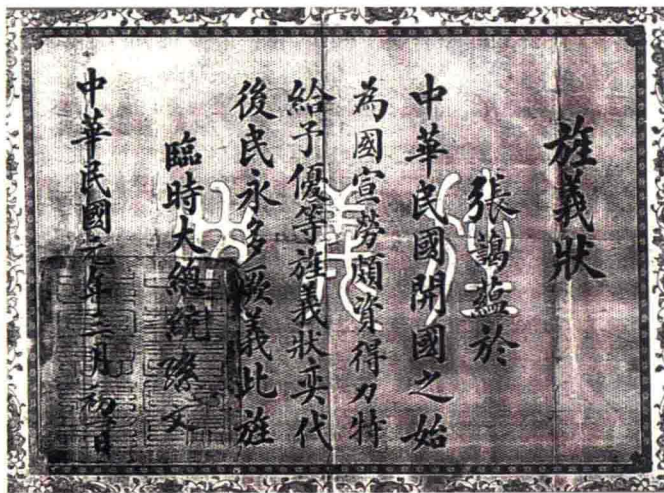 旌義狀
張藹蘊於
中華民國開國之始
為國宣勞頗資得力特
給予優等旌義狀奕代
後民永多厥義此旌
臨時大總統孫文
中華民國元年月初日